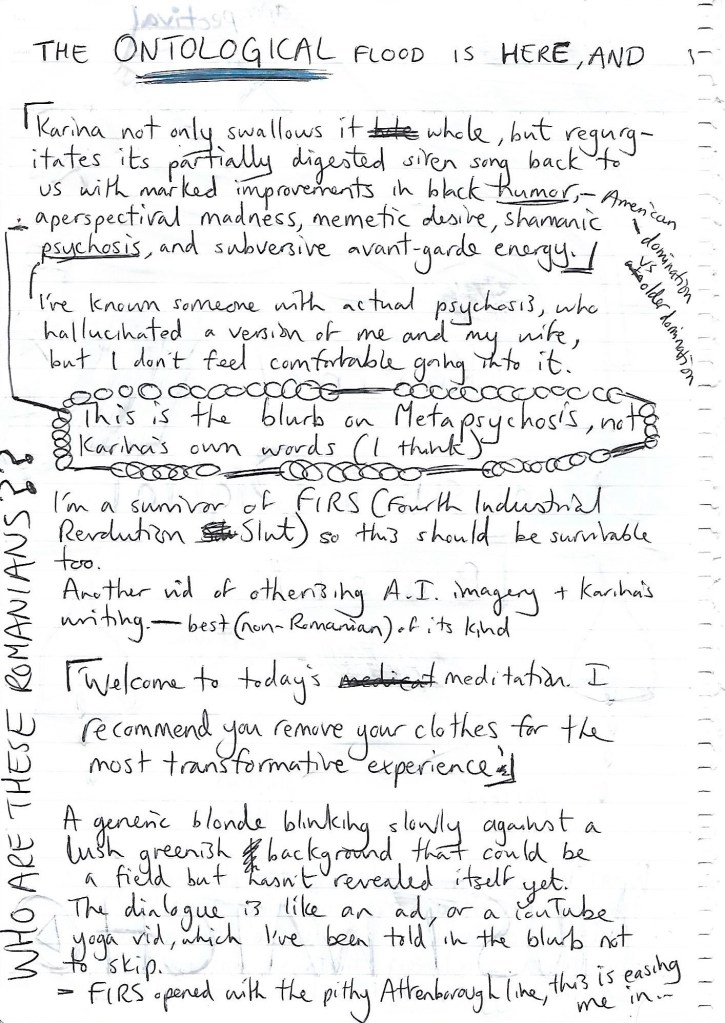 THE ONTOLOGICAL FLOOD IS HERE, AND
Karina not only swallows it whole, but regurg-
itates its partially digested siren song back to
us with marked improvements in black humor, –
aperspectival madness, memetic desire, shamanic
psychosis, and subversive avant-garde energy.
American
domination
vs
older domination
I've known someone with actual psychosis, who
hallucinated a version of me and my wife,
but I don't feel comfortable going into it.
This is the blurb on Metapsychosis, not
Karina's own words (I think)
I'm a survivor of FIRS (Fourth Industrial
Revolution Slut) so this should be survivable
too.
Another vid of otherising A.I. imagery + Karina's
writing. — best (non-Romanian) of its kind
Welcome to today's meditation. I
recommend you remove your clothes for the
most transformative experience
A generic blonde blinking slowly against a
lush greenish background that could be
a field but hasn't revealed itself yet.
The dialogue is like an ad, or a YouTube
yoga vid, which I've been told in the blurb not
to skip.
= FIRS opened with the pithy Attenborough line, this is easing
me in --
WHO ARE THESE ROMANIANS??